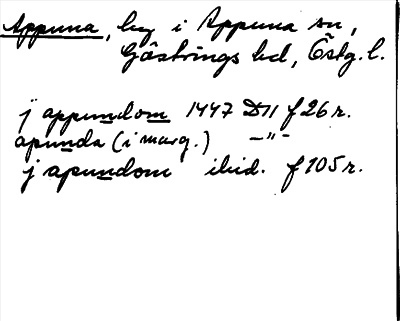 Appuna, by i Appuna sn,
Göstrings hd, Östg. l.
j appundom 1447 D11 f 26 r.
apunda (i marg.) –"–
j apundom ibid. f 105 r.